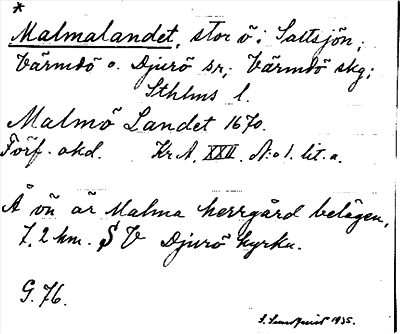 *
Malmalandet, stor ö i Saltsjön;
Värmdö o. Djurö sr; Värmdö skg;
Sthlms l.
Malmö Landet 1670.
Förf. okd. Kr A. XXII. N:o 1. lit. a.
Å ön är Malma herrgård belägen,
7,2 km. SV Djurö kyrka.
G. 76.
S. 1935.